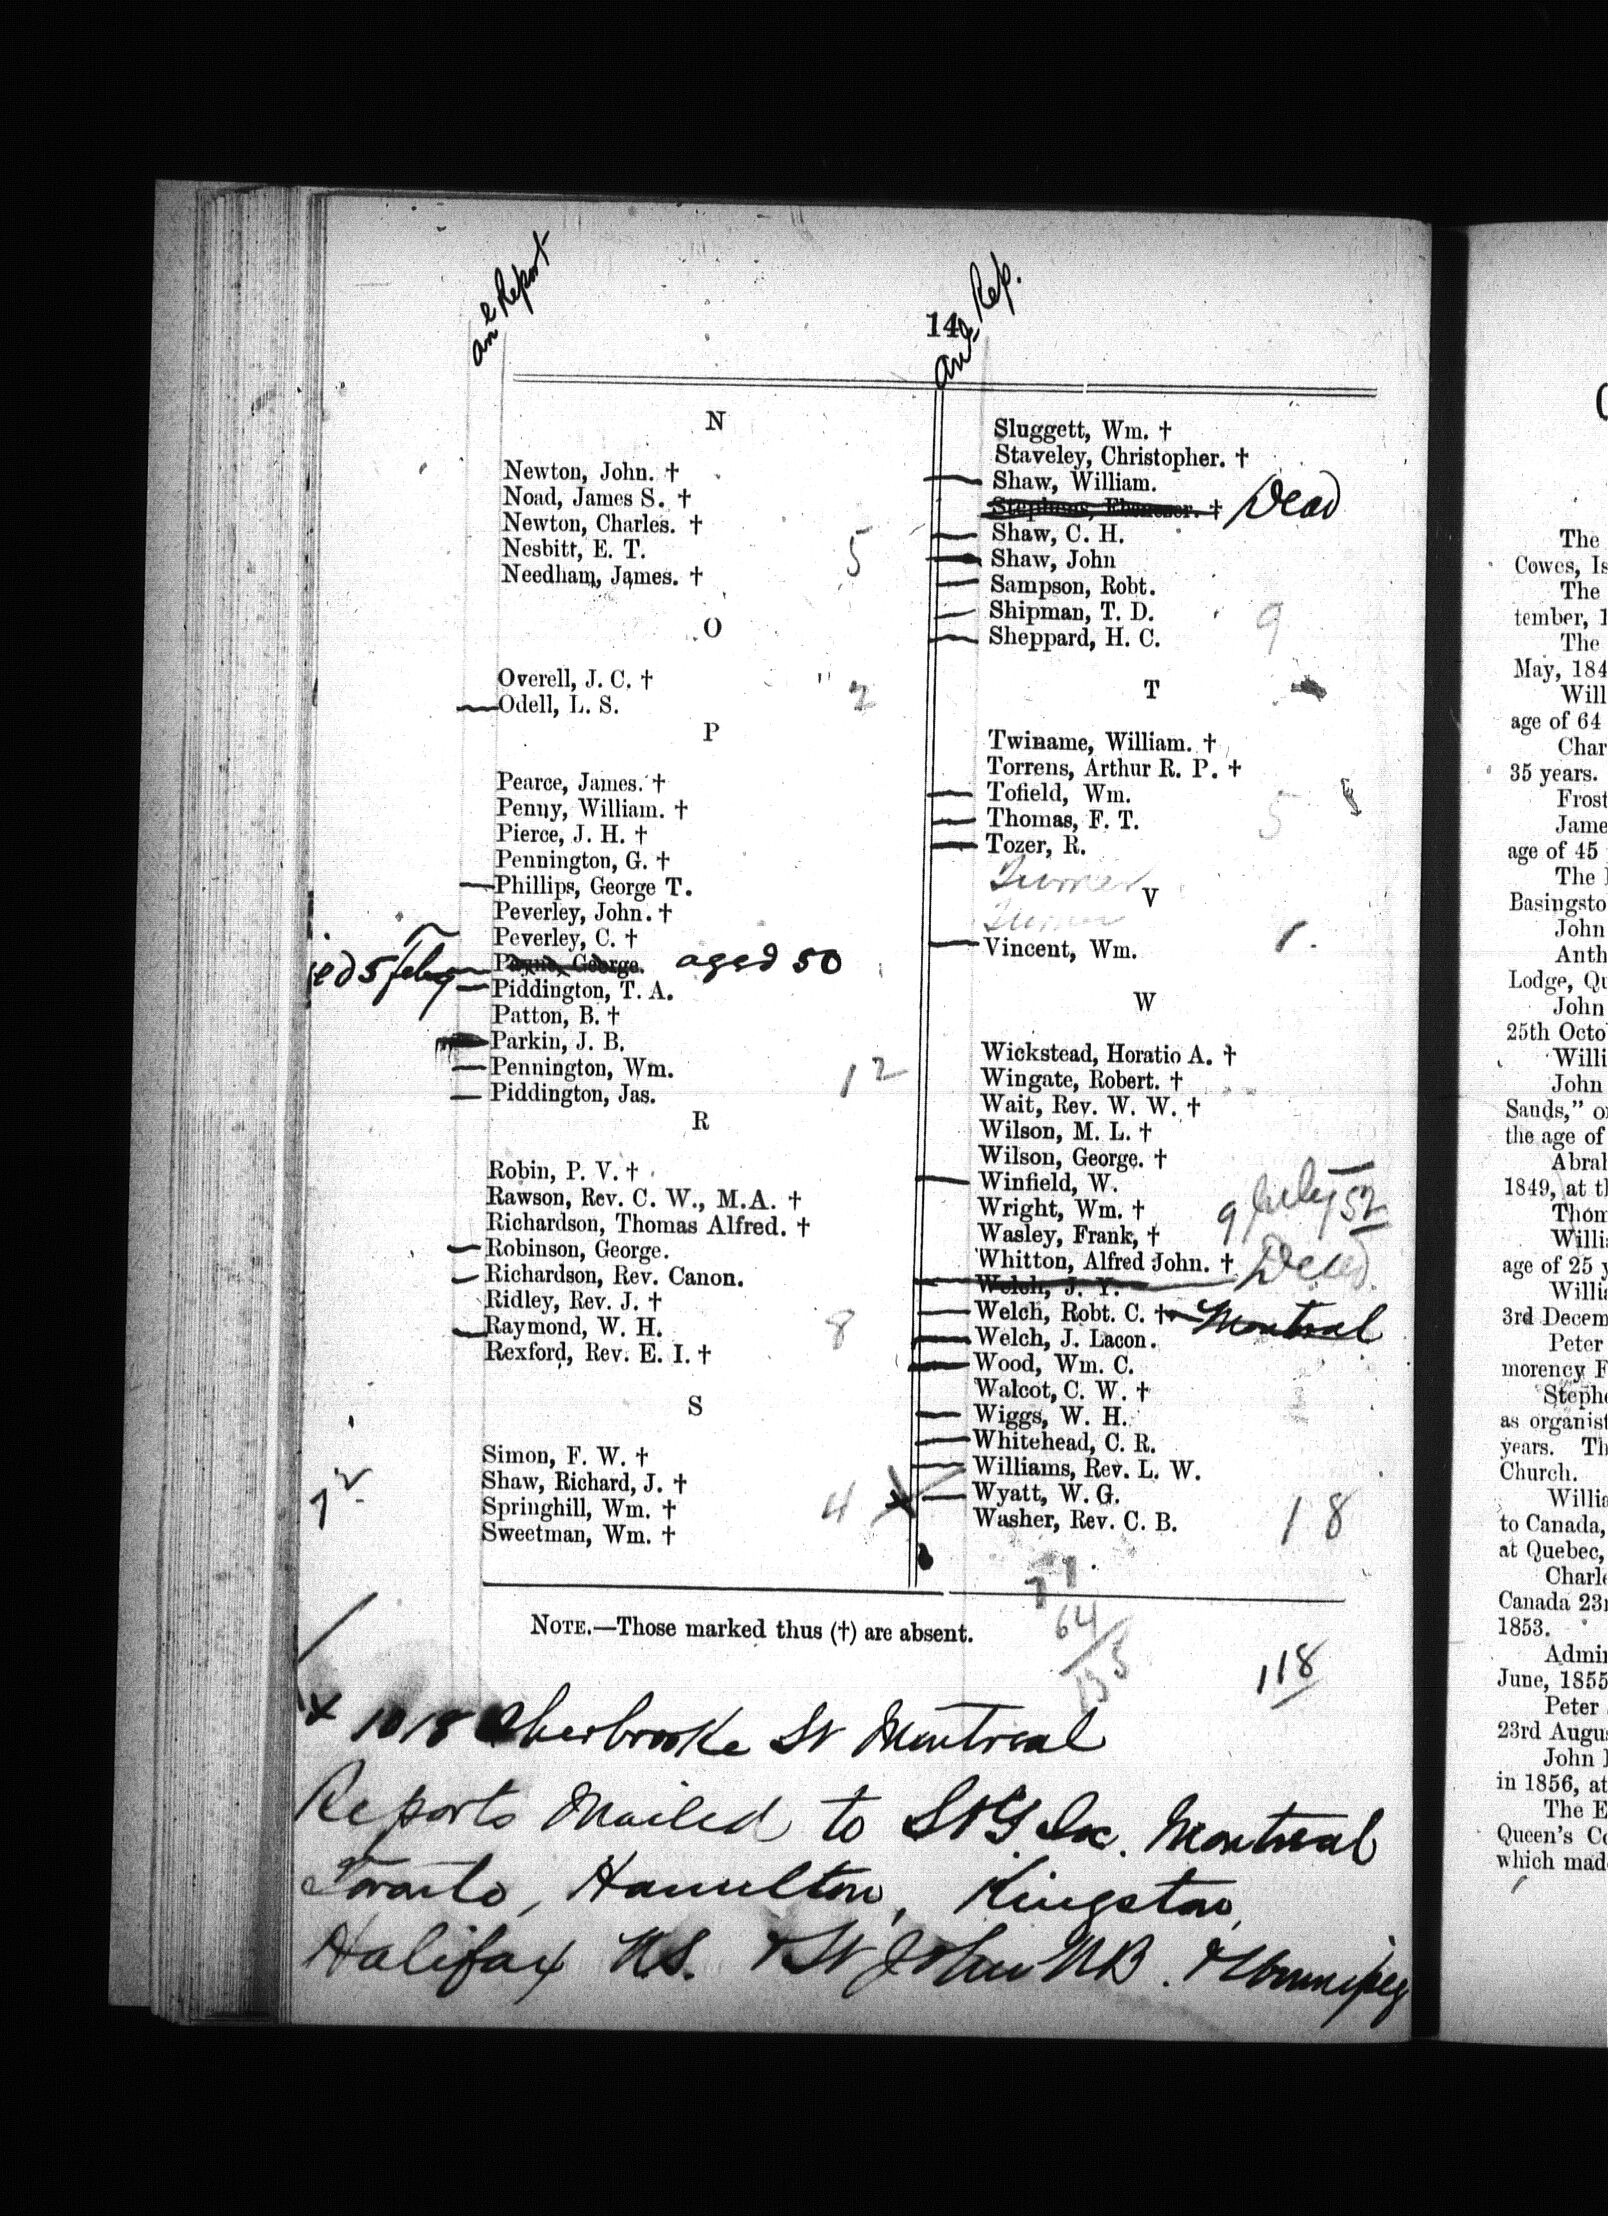 an e Report
an e Rep.
14
N
Newton, John. †
Noad, James S. †
Newton, Charles. †
Nesbitt, E. T.
Needham, James. †
5
O
Overell, J. C. †
2
Odell, L. S.
P
Pearce, James. †
Penny, William. †
Pierce, J. H. †
Pennington, G. †
Phillips, George T.
Peverley, John. †
Peverley, C. †
Payne, George. aged 50
ied 5 feby
Piddington, T. A.
Patton, B. †
Parkin, J. B.
Pennington, Wm.
12
Piddington, Jas.
R
Robin, P. V. †
Rawson, Rev. C. W., M.A. †
Richardson, Thomas Alfred. †
Robinson, George.
Richardson, Rev. Canon.
Ridley, Rev. J. †
Raymond, W. H.
8
Rexford, Rev. E. I. †
S
Simon, F. W. †
Shaw, Richard, J. †
Springhill, Wm. †
4
Sweetman, Wm. †
Sluggett, Wm. †
Staveley, Christopher. †
Shaw, William.
Stephens, Ebenezer. † Dead
Shaw, C. H.
Shaw, John
Sampson, Robt.
Shipman, T. D.
9
Sheppard, H. C.
T
Twiname, William. †
Torrens, Arthur R. P. †
Tofield, Wm.
Thomas, F. T.
5
Tozer, R.
Turner
V
Turner
Vincent, Wm.
1.
W
Wickstead, Horatio A. †
Wingate, Robert. †
Wait, Rev. W. W. †
Wilson, M. L. †
Wilson, George. †
Winfield, W.
Wright, Wm. †
9 July 52
Wasley, Frank, †
Whitton, Alfred John. †
Welch, J. Y. Dead.
Welch, Robt. C. † Montreal
Welch, J. Lacon.
Wood, Wm. C.
Walcot, C. W. †
Wiggs, W. H.
Whitehead, C. R.
Williams, Rev. L. W.
x Wyatt, W. G.
Washer, Rev. C. B.
18
71
64
135
118
NOTE.—Those marked thus (†) are absent.
x 1018 Sherbrooke St Montreal
Reports Mailed to St G Soc. Montreal
Toronto, Hamilton, Kingston,
Halifax N.S. & St John NB. & Winnipeg
The
Cowes, Is
The
tember, 1
The
May, 184
Will
age of 64
Char
35 years.
Frost
Jame
age of 45
The
Basingsto
John
Anth
Lodge, Qu
John
25th Octo
Willi
John
Sands," o
the age of
Abrah
1849, at th
Thom
Willia
age of 25 y
Willia
3rd Decem
Peter
morency F
Stephe
as organist
years. Th
Church.
Willia
to Canada,
at Quebec,
Charle
Canada 23r
1853.
Admin
June, 1855
Peter
23rd Augus
John
in 1856, at
The E
Queen's Co
which made